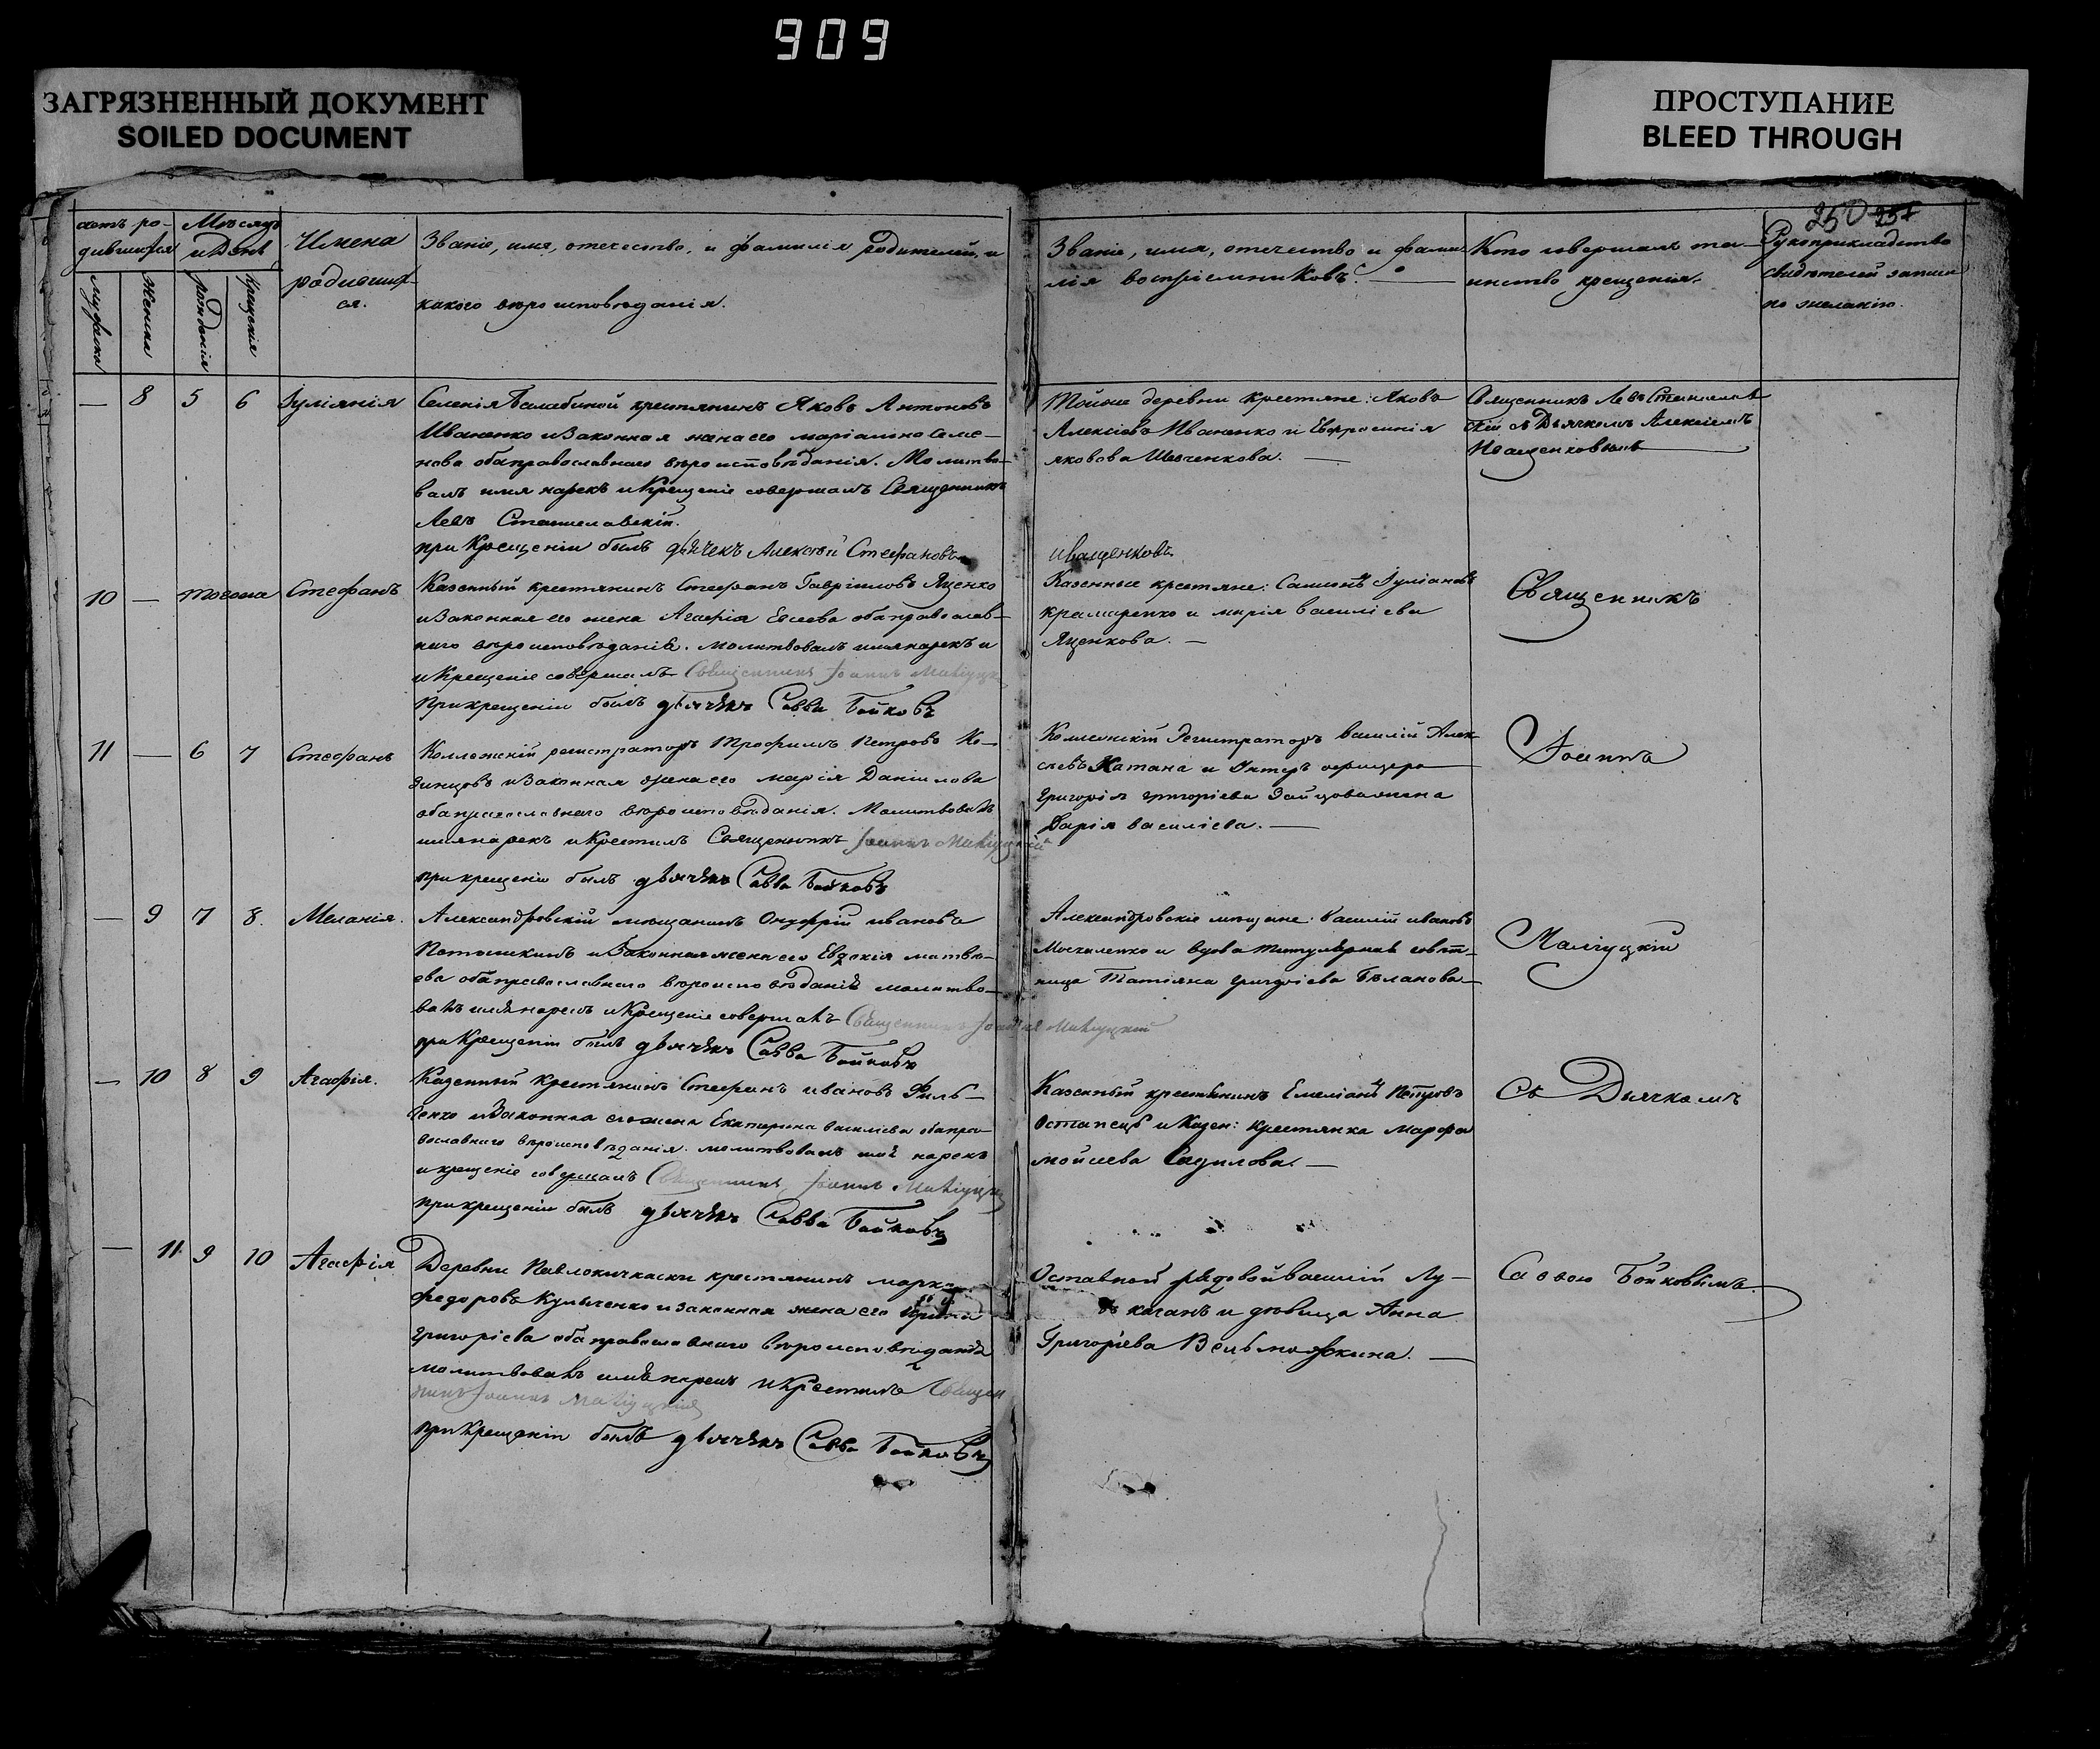 909
ЗАГРЯЗНЕННЫЙ ДОКУМЕНТ
SOILED DOCUMENT
ПРОСТУПАНИЕ
BLEED THROUGH
250 251
счетъ ро-
дившихся
Мѣсяцъ
и День
Имена
родивших-
ся.
Званіе, имя, отечество, и фамилія родителей, и
какого вѣроисповѣданія.
Званіе, имя, отечество и фами-
лія воспріемниковъ.
Кто совершалъ та-
инство крещенія.
Рукоприкладство
свидѣтелей записи
по желанію.
мужеска
Женска
рожденія
Крещенія
— 8 5 6 Іуліянія
Селенія Балабиной крестянинъ Яковъ Антоновъ
Иваненко и Законная жена его маріамна Семе-
нова оба православнаго вѣроисповѣданія. Молитво-
валъ имя нарекъ и Крещеніе совершалъ Священникъ
Левъ Станиславскій.
при Крещеніи былъ дьячекъ Алексѣй Стефановъ
Тойже деревни крестяне: Яковъ
Алексіевъ Иваненко и Евфросинія
яковова Шевченкова. —
Иващенковъ
Священникъ Левъ Станислав-
скій съ Дьячкомъ Алексіемъ
Иващенковымъ
10 — тогожа Стефанъ
Казенный крестянинъ Стефанъ Гавріиловъ Яценко
и Законная его жена Агафія Евсеева оба православ-
наго вѣроисповѣданія. молитвовалъ имя нарекъ и
и Крещеніе совершалъ Священникъ Іоаннъ Малѣуцкі
При крещеніи былъ дьячекъ Савва Бойковъ
Казенные крестяне: Самсонъ Іуліановъ
крамаренко и марія василіева
Яценкова. —
Священникъ
11 — 6 7 Стефанъ
Коллежскій регистраторъ Трофимъ Петровъ Ко-
зинцовъ и Законная жена его марія Даніилова
оба православнаго вѣроисповѣданія. Молитвовалъ
имя нарекъ и Крестилъ Священникъ Іоаннъ Малѣуцкій
при крещеніи былъ дьячекъ Савва Бойковъ
Колежскій Регистраторъ василій Алек-
сіевъ Катана и Унтеръ офицера
григорія григоріева Зайцова жена
Дарія василіева. —
Іоаннъ
— 9 7 8. Меланія.
Александровскій мѣщанинъ Онуфрій ивановъ
Потомкинъ и Законная жена его Евдокія матвѣ-
ева оба православнаго вѣроисповѣданія молитво-
валъ имя нарекъ и Крещеніе совершалъ Священникъ Іоаннъ Малѣуцкій
при Крещеніи былъ дьячекъ Савва Бойковъ
Александровскіе мѣщане: василій ивановъ
Москаленко и вдова титулярная совѣт-
ница Татіяна григоріева Бѣланова
Малѣуцкій
— 10 8 9 Агафія.
Казенный Крестянинъ Стефанъ ивановъ Филь-
ченко и Законная его жена Екатерина василіева оба пра-
вославнаго вѣроисповѣданія. молитвовалъ имя нарекъ
и крещеніе совершалъ Священникъ Іоаннъ Малѣуцкі
при крещеніи былъ дьячекъ Савва Бойковъ
Казенный крестянинъ Емеліанъ Петровъ
Остапецъ и Казен: крестянка Марфа
мойсіева Садилова. —
Съ Дьячкомъ
— 11 9 10 Агафія
Деревни Павлокичкаски крестянинъ марко
федоровъ Кульченко и законная жена его
григоріева оба православнаго вѣроисповѣданія
молитвовалъ имя нарекъ и Крестилъ Священ
никъ Іоаннъ Малѣуцкій
при Крещеніи былъ дьячекъ Савва Бойковъ
Отставной рядовой василій Лу-
каганъ и дѣвица Анна
Григоріева Вельможкина. —
Саввою Бойковымъ.